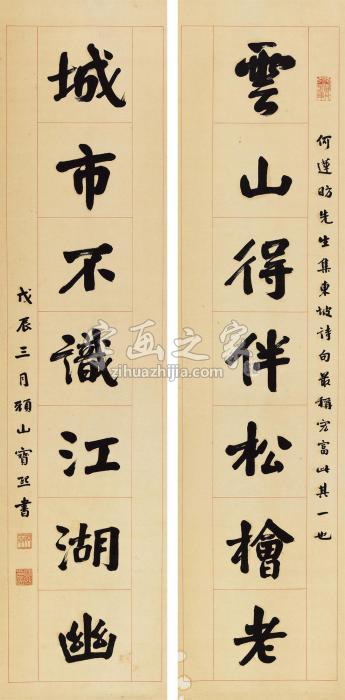 何蓮昉先生集東坡詩句最稱宏富此其一也
雲山得伴松檜老
城市不識江湖幽
戊辰三月頌山寶熙書
字画之家
zihuazhijia.com